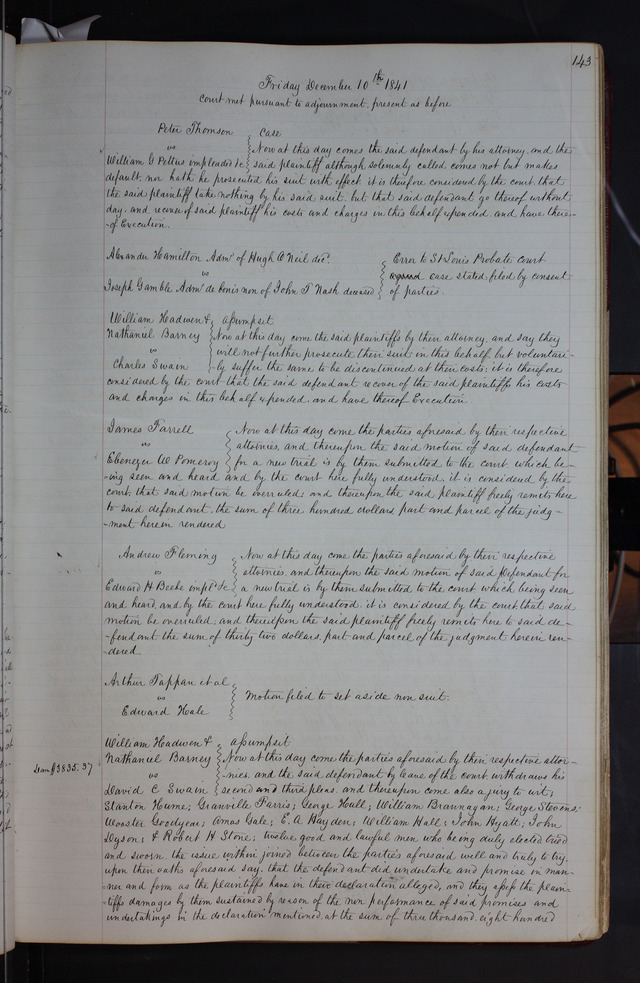 143
Friday December 10th 1841
Court met pursuant to adjournment, present as before
Peter Thomson Case
vs Now at this day comes the said defendant by his attorney, and the
William G Pettus impleaded &c said plaintiff although solemnly called comes not but makes
default; nor hath he prosecuted his suit with effect. it is therefore considered by the court, that
the said plaintiff take nothing by his said suit. but that said defendant go thereof without
day. and recover of said plaintiff his costs and charges in this behalf expended. and have there-
-of Execution.
Alexander Hamilton Admr. of Hugh O Neil decd. Error to St Louis Probate Court
vs case stated, filed by consent
Joseph Gamble Admr. de bonis non of John P Nash deceased of parties.
William Hadwen & assumpsit
Nathaniel Barney Now at this day come the said plaintiffs by their attorney, and say they
vs will not further prosecute their suit in this behalf, but voluntari-
Charles Swain -ly suffer the same to be discontinued at their costs; it is therefore
considered by the court that the said defendant recover of the said plaintiffs his costs
and charges in this behalf expended, and have thereof Execution.
James Farrell Now at this day come the parties aforesaid by their respective
vs attornies, and thereupon the said motion of said defendant
Ebenezer W Pomeroy for a new trial is by them submitted to the court which be-
-ing seen and heard and by the court here fully understood, it is considered by the
court, that said motion be overruled; and thereupon the said plaintiff freely remits here
to said defendant, the sum of three hundred dollars part and parcel of the judg-
-ment herein rendered
Andrew Fleming Now at this day come the parties aforesaid by their respective
vs attornies, and thereupon the said motion of said Defendant for
Edward H Beebe impld &c a new trial is by them submitted to the court which being seen
and heard, and by the court here fully understood, it is considered by the court that said
motion be overruled, and thereupon the said plaintiff freely remits here to said de-
-fendant the sum of thirty two dollars, part and parcel of the judgment herein ren-
-dered
Arthur Tappan et al
vs Motion filed to set aside non suit.
Edward Hale
William Hadwen & assumpsit
Nathaniel Barney Now at this day come the parties aforesaid by their respective attor-
$3835.37
vs -nies, and the said defendant by leave of the court withdraws his
David C Swain second and third pleas, and thereupon come also a jury to wit,
Stanton Hume; Granville Farris; George Hull; William Brannagan; George Stevens;
Wooster Goodyear; Amos Gale; E. A Hayden; William Hall; John Hyatt; John
Dyson; & Robert H Stone; twelve good and lawful men who being duly elected tried
and sworn the issue within joined between the parties aforesaid well and truly to try,
upon their oaths aforesaid say, that the defendant did undertake and promise in man-
ner and form as the plaintiffs have in their declaration alleged, and they assess the plain-
-tiffs damages by them sustained by reason of the non performance of said promises and
undertakings in the declaration mentioned, at the sum of three thousand eight hundred